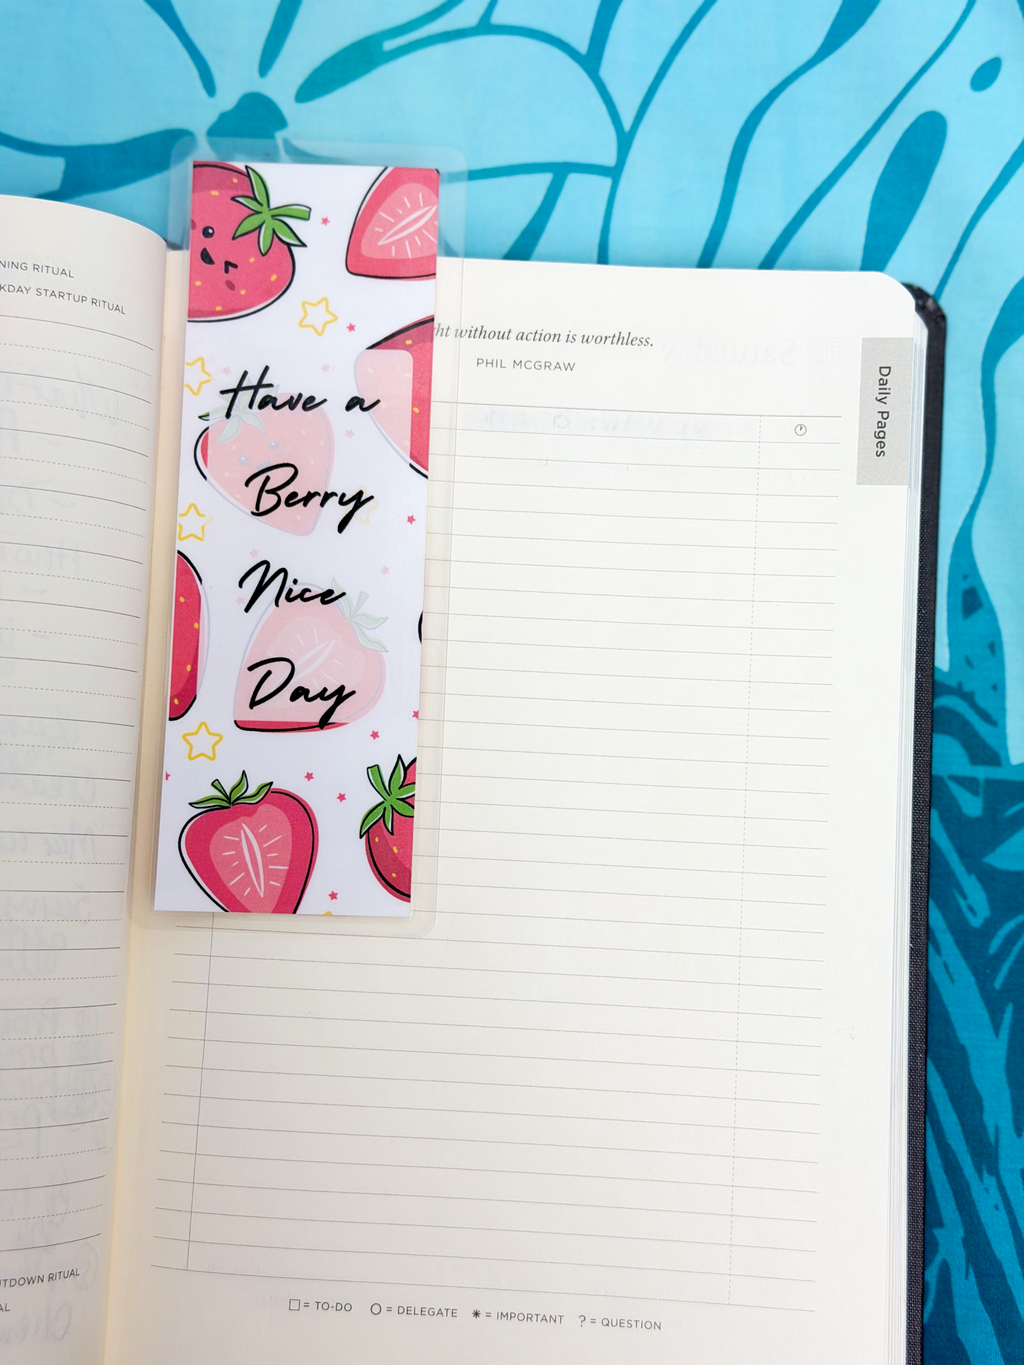 NING RITUAL
KDAY STARTUP RITUAL
Have a
Berry
Nice
Day
ht without action is worthless.
PHIL MCGRAW
Daily Pages
TDOWN RITUAL
AL
□ = TO-DO ○ = DELEGATE ✱ = IMPORTANT ? = QUESTION